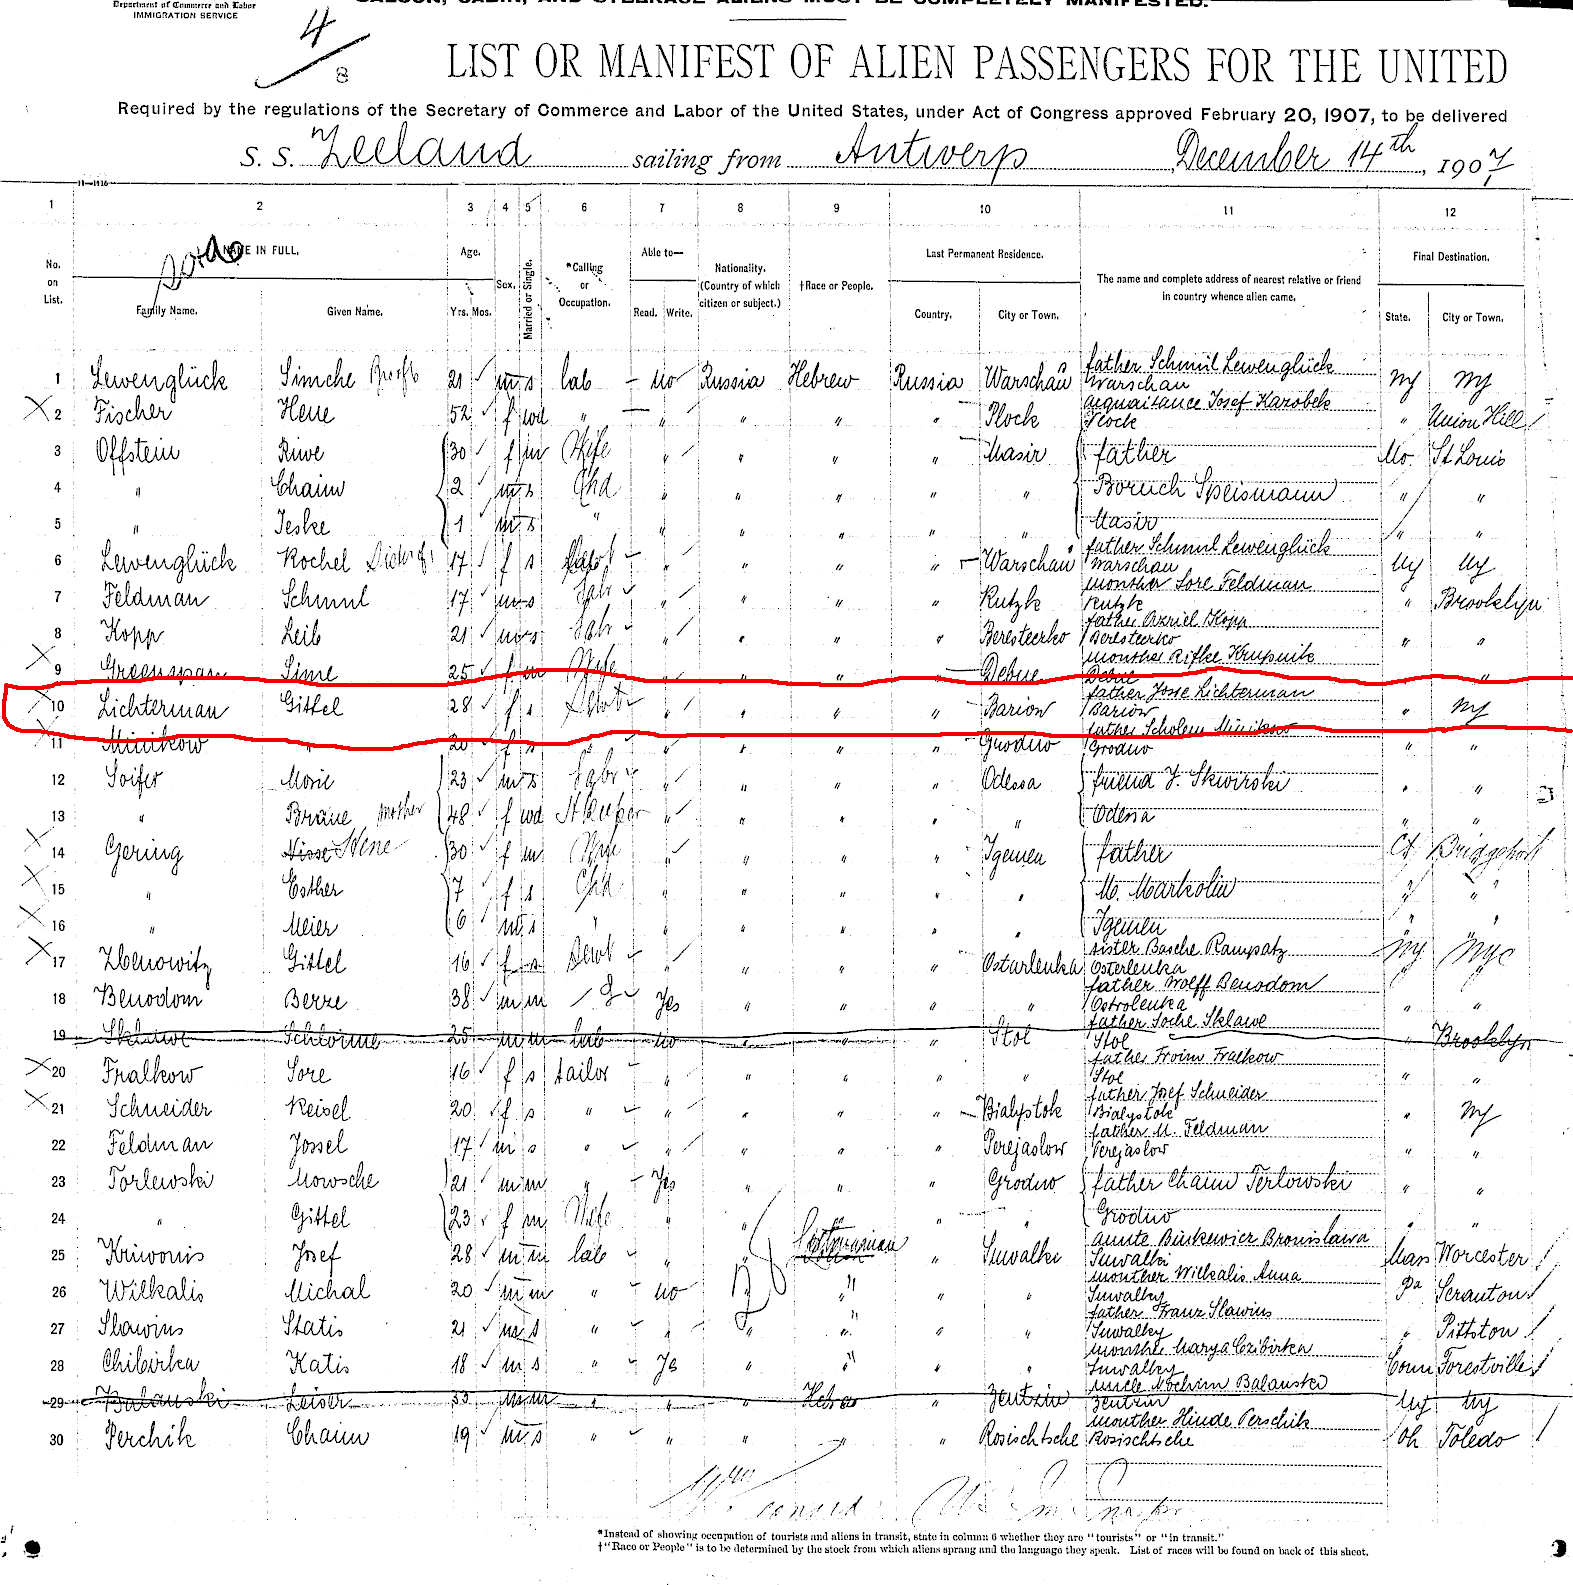 Department of Commerce and Labor
IMMIGRATION SERVICE
SALOON, CABIN, AND STEERAGE ALIENS MUST BE COMPLETELY MANIFESTED.
4/8
LIST OR MANIFEST OF ALIEN PASSENGERS FOR THE UNITED
Required by the regulations of the Secretary of Commerce and Labor of the United States, under Act of Congress approved February 20, 1907, to be delivered
S. S. Zeeland sailing from Antwerp December 14th, 1907
1 2 3 4 5 6 7 8 9 10 11 12
No. on List. NAME IN FULL. Age. Sex. Married or Single. *Calling or Occupation. Able to— Nationality. (Country of which citizen or subject.) †Race or People. Last Permanent Residence. The name and complete address of nearest relative or friend in country whence alien came. Final Destination.
Family Name. Given Name. Yrs. Mos. Read. Write. Country. City or Town. State. City or Town.
1 Lewenglück Simche 21 m s lab no Russia Hebrew Russia Warschau father Schmil Lewenglück Warschau NY NY
2 Fischer Hene 52 f wd " " " " " Plock acquaitance Josef Karobek Plock " Union Hill
3 Offstein Riwe 30 f m Wife " " " " Masir father Mo St Louis
4 " Chaim 2 m s Chd " " " " " Boruch Speismann " "
5 " Jeske 1 m s " " " " " " Masir " "
6 Lewenglück Rochel 17 f s " " " " Warschau father Schmul Lewenglück Warschau NY NY
7 Feldman Schmul 17 m s " " " " Kutzk monther Sore Feldman Kutzk " Brooklyn
8 Kopp Leib 21 m s " " " " Beresteczko father Azriel Kopp Beresteczko " "
9 Greenspan Sime 25 f m Wife " " " " Debue monther Rifke Krupnik Debue "
10 Lichterman Gittel 28 f s " " " " Bariow father Josse Lichterman Bariow " NY
11 Minikow " 20 f s " " " Grodno father Scholem Minikow Grodno " "
12 Soifer Morie 23 m s " " " " Odessa friend J. Skwirski " "
13 " Brane mother 48 f wd " " " " " Odessa " "
14 Gering Nisse Hene 30 f m Wife " " " " Igemen father Ct Bridgeport
15 " Esther 7 f s Chd " " " " " M. Markolin " "
16 " Meier 6 m s " " " " " " Igemen " "
17 Zbenowitz Gittel 16 f s " " " " Ostarlenka sister Basche Rampatz Osterlenka NY NYC
18 Benodom Berze 38 m m Yes " " " " father Wolff Benodom Ostrolenka " "
19 Sklawe Schlorme 25 m m lab no " " " Stol father Soche Sklawe Stol " Brooklyn
20 Fralkow Sore 16 f s tailor " " " " " father Froim Fralkow Stol " "
21 Schneider Reisel 20 f s " " " " " Bialystok father Josef Schneider Bialystok " NY
22 Feldman Jossel 17 m s " " " " " Perejaslow father M. Feldman Perejaslow " "
23 Torlewski Mowsche 21 m m " Yes " " " Grodno father Chaim Terlowski " "
24 " Gittel 23 f m Wife " " " " " Grodno " "
25 Kriwonis Josef 28 m m lab " " Lithuanian " Suwalki aunte Binkewicz Bronislawa Suwalki Mass Worcester
26 Wilkalis Michal 20 m m " no " " " monther Wilkalis Anna Suwalky Pa Scranton
27 Slawins Statis 21 m s " " " " " father Franz Slawins Suwalky " Pittston
28 Chibirka Katis 18 m s " Yes " " " " monther Marya Czibirka Suwalky Conn Forestville
29 Balanski Leiser 33 m m " " " Hebrew " Zentrin uncle Nochim Balanski Zentrin NY NY
30 Perchik Chaim 19 m s " " " " " Rosischtsche monther Hinde Perschik Rosischtsche Oh Toledo
*Instead of showing occupation of tourists and aliens in transit, state in column 6 whether they are "tourists" or "in transit."
†"Race or People" is to be determined by the stock from which aliens sprang and the language they speak. List of races will be found on back of this sheet.